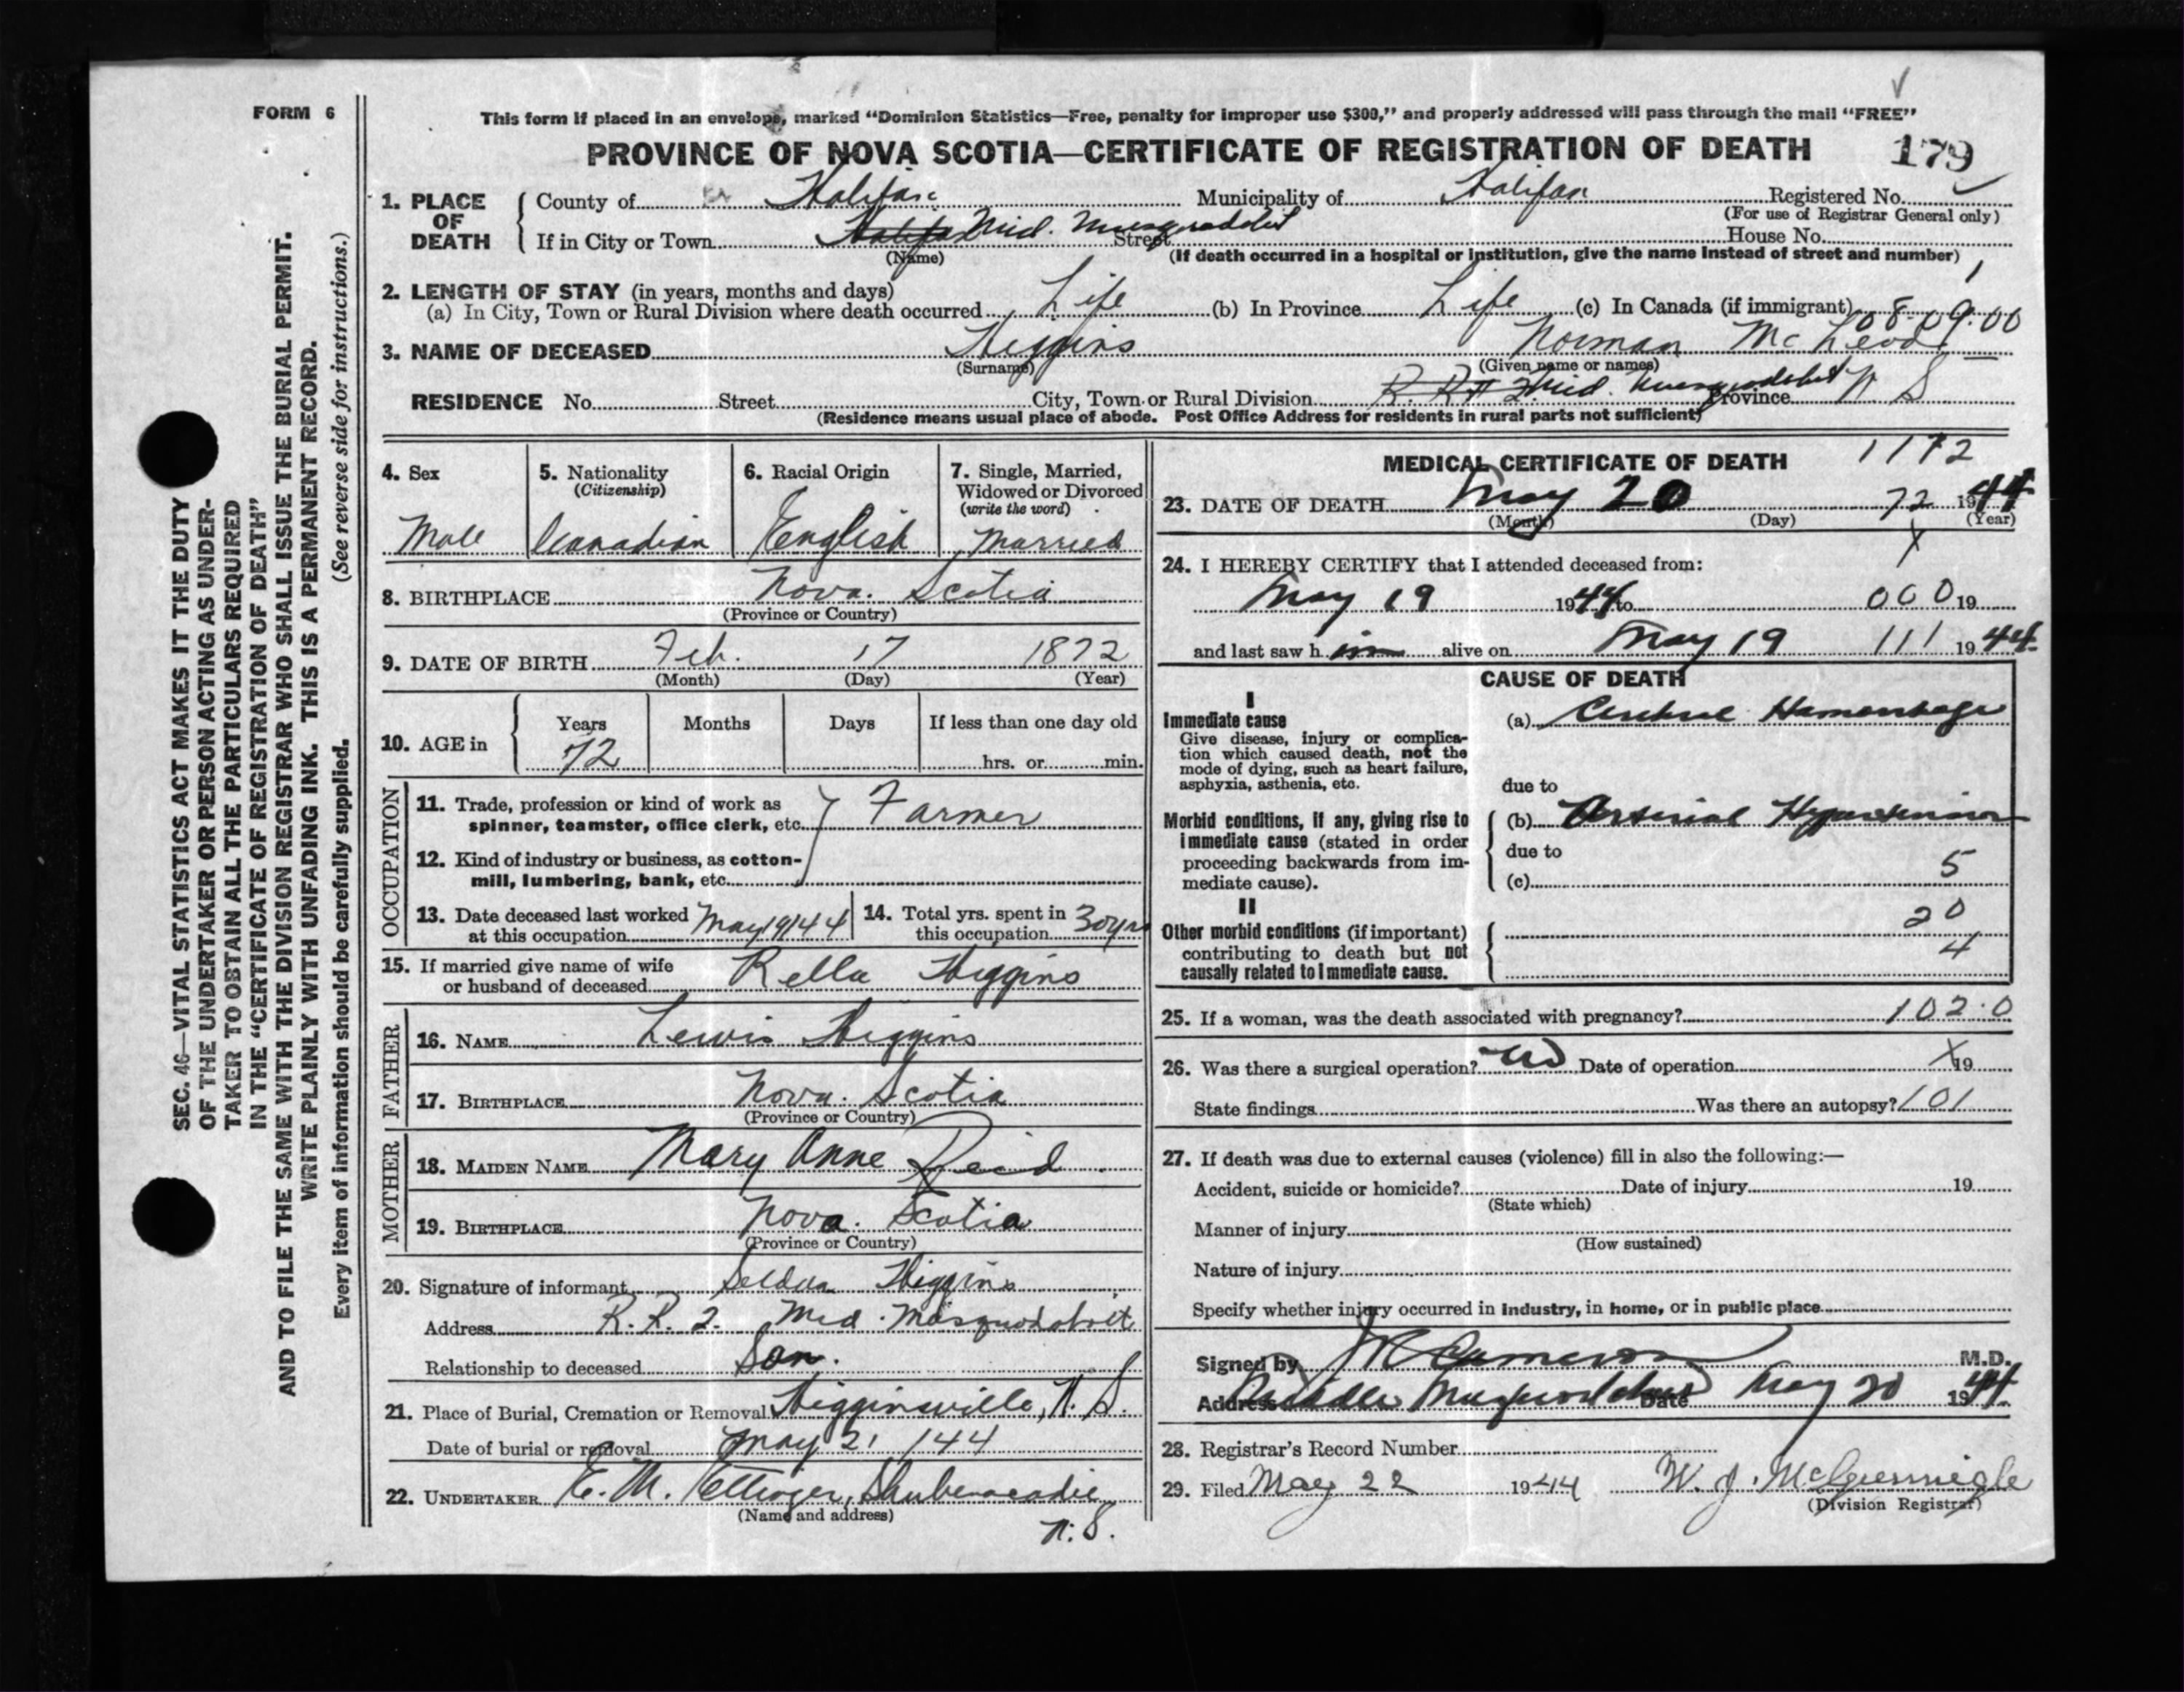 FORM 6
This form if placed in an envelope, marked “Dominion Statistics—Free, penalty for improper use $300,” and properly addressed will pass through the mail “FREE”
PROVINCE OF NOVA SCOTIA—CERTIFICATE OF REGISTRATION OF DEATH 179
1. PLACE OF DEATH
County of Halifax Municipality of Halifax Registered No.
(For use of Registrar General only)
If in City or Town Halifax Mid. Musquodobit Street House No.
(Name) (If death occurred in a hospital or institution, give the name instead of street and number)
2. LENGTH OF STAY (in years, months and days)
(a) In City, Town or Rural Division where death occurred Life (b) In Province Life (c) In Canada (if immigrant) 08.09.00
3. NAME OF DECEASED Higgins Norman McLeod
(Surname) (Given name or names)
RESIDENCE No. Street City, Town or Rural Division R. R # 2 Mid. Musquodobit Province N S
(Residence means usual place of abode. Post Office Address for residents in rural parts not sufficient)
4. Sex
Male
5. Nationality
(Citizenship)
Canadian
6. Racial Origin
English
7. Single, Married,
Widowed or Divorced
(write the word)
Married
8. BIRTHPLACE Nova. Scotia
(Province or Country)
9. DATE OF BIRTH Feb. 17 1872
(Month) (Day) (Year)
10. AGE in
Years Months Days If less than one day old
72 hrs. or min.
OCCUPATION
11. Trade, profession or kind of work as
spinner, teamster, office clerk, etc. Farmer
12. Kind of industry or business, as cotton-
mill, lumbering, bank, etc.
13. Date deceased last worked
at this occupation May 19/44
14. Total yrs. spent in
this occupation 30 yrs
15. If married give name of wife
or husband of deceased Rella Higgins
FATHER
16. NAME Lewis Higgins
17. BIRTHPLACE Nova. Scotia
(Province or Country)
MOTHER
18. MAIDEN NAME Mary Anne Reid
19. BIRTHPLACE Nova. Scotia
(Province or Country)
20. Signature of informant Higgins
Address R. R. 2. Mid. Musquodoboit
Relationship to deceased Son.
21. Place of Burial, Cremation or Removal Higginsville, N. S.
Date of burial or removal May 21 /44
22. UNDERTAKER E. M. Ettinger, Shubenacadie
(Name and address) N. S.
MEDICAL CERTIFICATE OF DEATH 1172
23. DATE OF DEATH May 20 72 1944
(Month) (Day) (Year)
X
24. I HEREBY CERTIFY that I attended deceased from:
May 19 1944 to 000 19
and last saw h im alive on May 19 111 1944
CAUSE OF DEATH
I
Immediate cause
Give disease, injury or complica-
tion which caused death, not the
mode of dying, such as heart failure,
asphyxia, asthenia, etc.
(a) Cerebral Hemorrhage
due to
Morbid conditions, if any, giving rise to
immediate cause (stated in order
proceeding backwards from im-
mediate cause).
(b) Arterial Hypertension
due to
5
(c)
II
Other morbid conditions (if important)
contributing to death but not
causally related to immediate cause.
20
4
25. If a woman, was the death associated with pregnancy? 102.0
26. Was there a surgical operation? no Date of operation X 19
State findings Was there an autopsy? 101
27. If death was due to external causes (violence) fill in also the following:—
Accident, suicide or homicide? Date of injury 19
(State which)
Manner of injury
(How sustained)
Nature of injury
Specify whether injury occurred in industry, in home, or in public place
Signed by J R Cameron M.D.
Address Middle Musquodoboit Date May 20 1944
28. Registrar's Record Number
29. Filed May 22 1944 W. J.
(Division Registrar)
SEC. 46—VITAL STATISTICS ACT MAKES IT THE DUTY
OF THE UNDERTAKER OR PERSON ACTING AS UNDER-
TAKER TO OBTAIN ALL THE PARTICULARS REQUIRED
IN THE “CERTIFICATE OF REGISTRATION OF DEATH”
AND TO FILE THE SAME WITH THE DIVISION REGISTRAR WHO SHALL ISSUE THE BURIAL PERMIT.
WRITE PLAINLY WITH UNFADING INK. THIS IS A PERMANENT RECORD.
Every item of information should be carefully supplied. (See reverse side for instructions.)